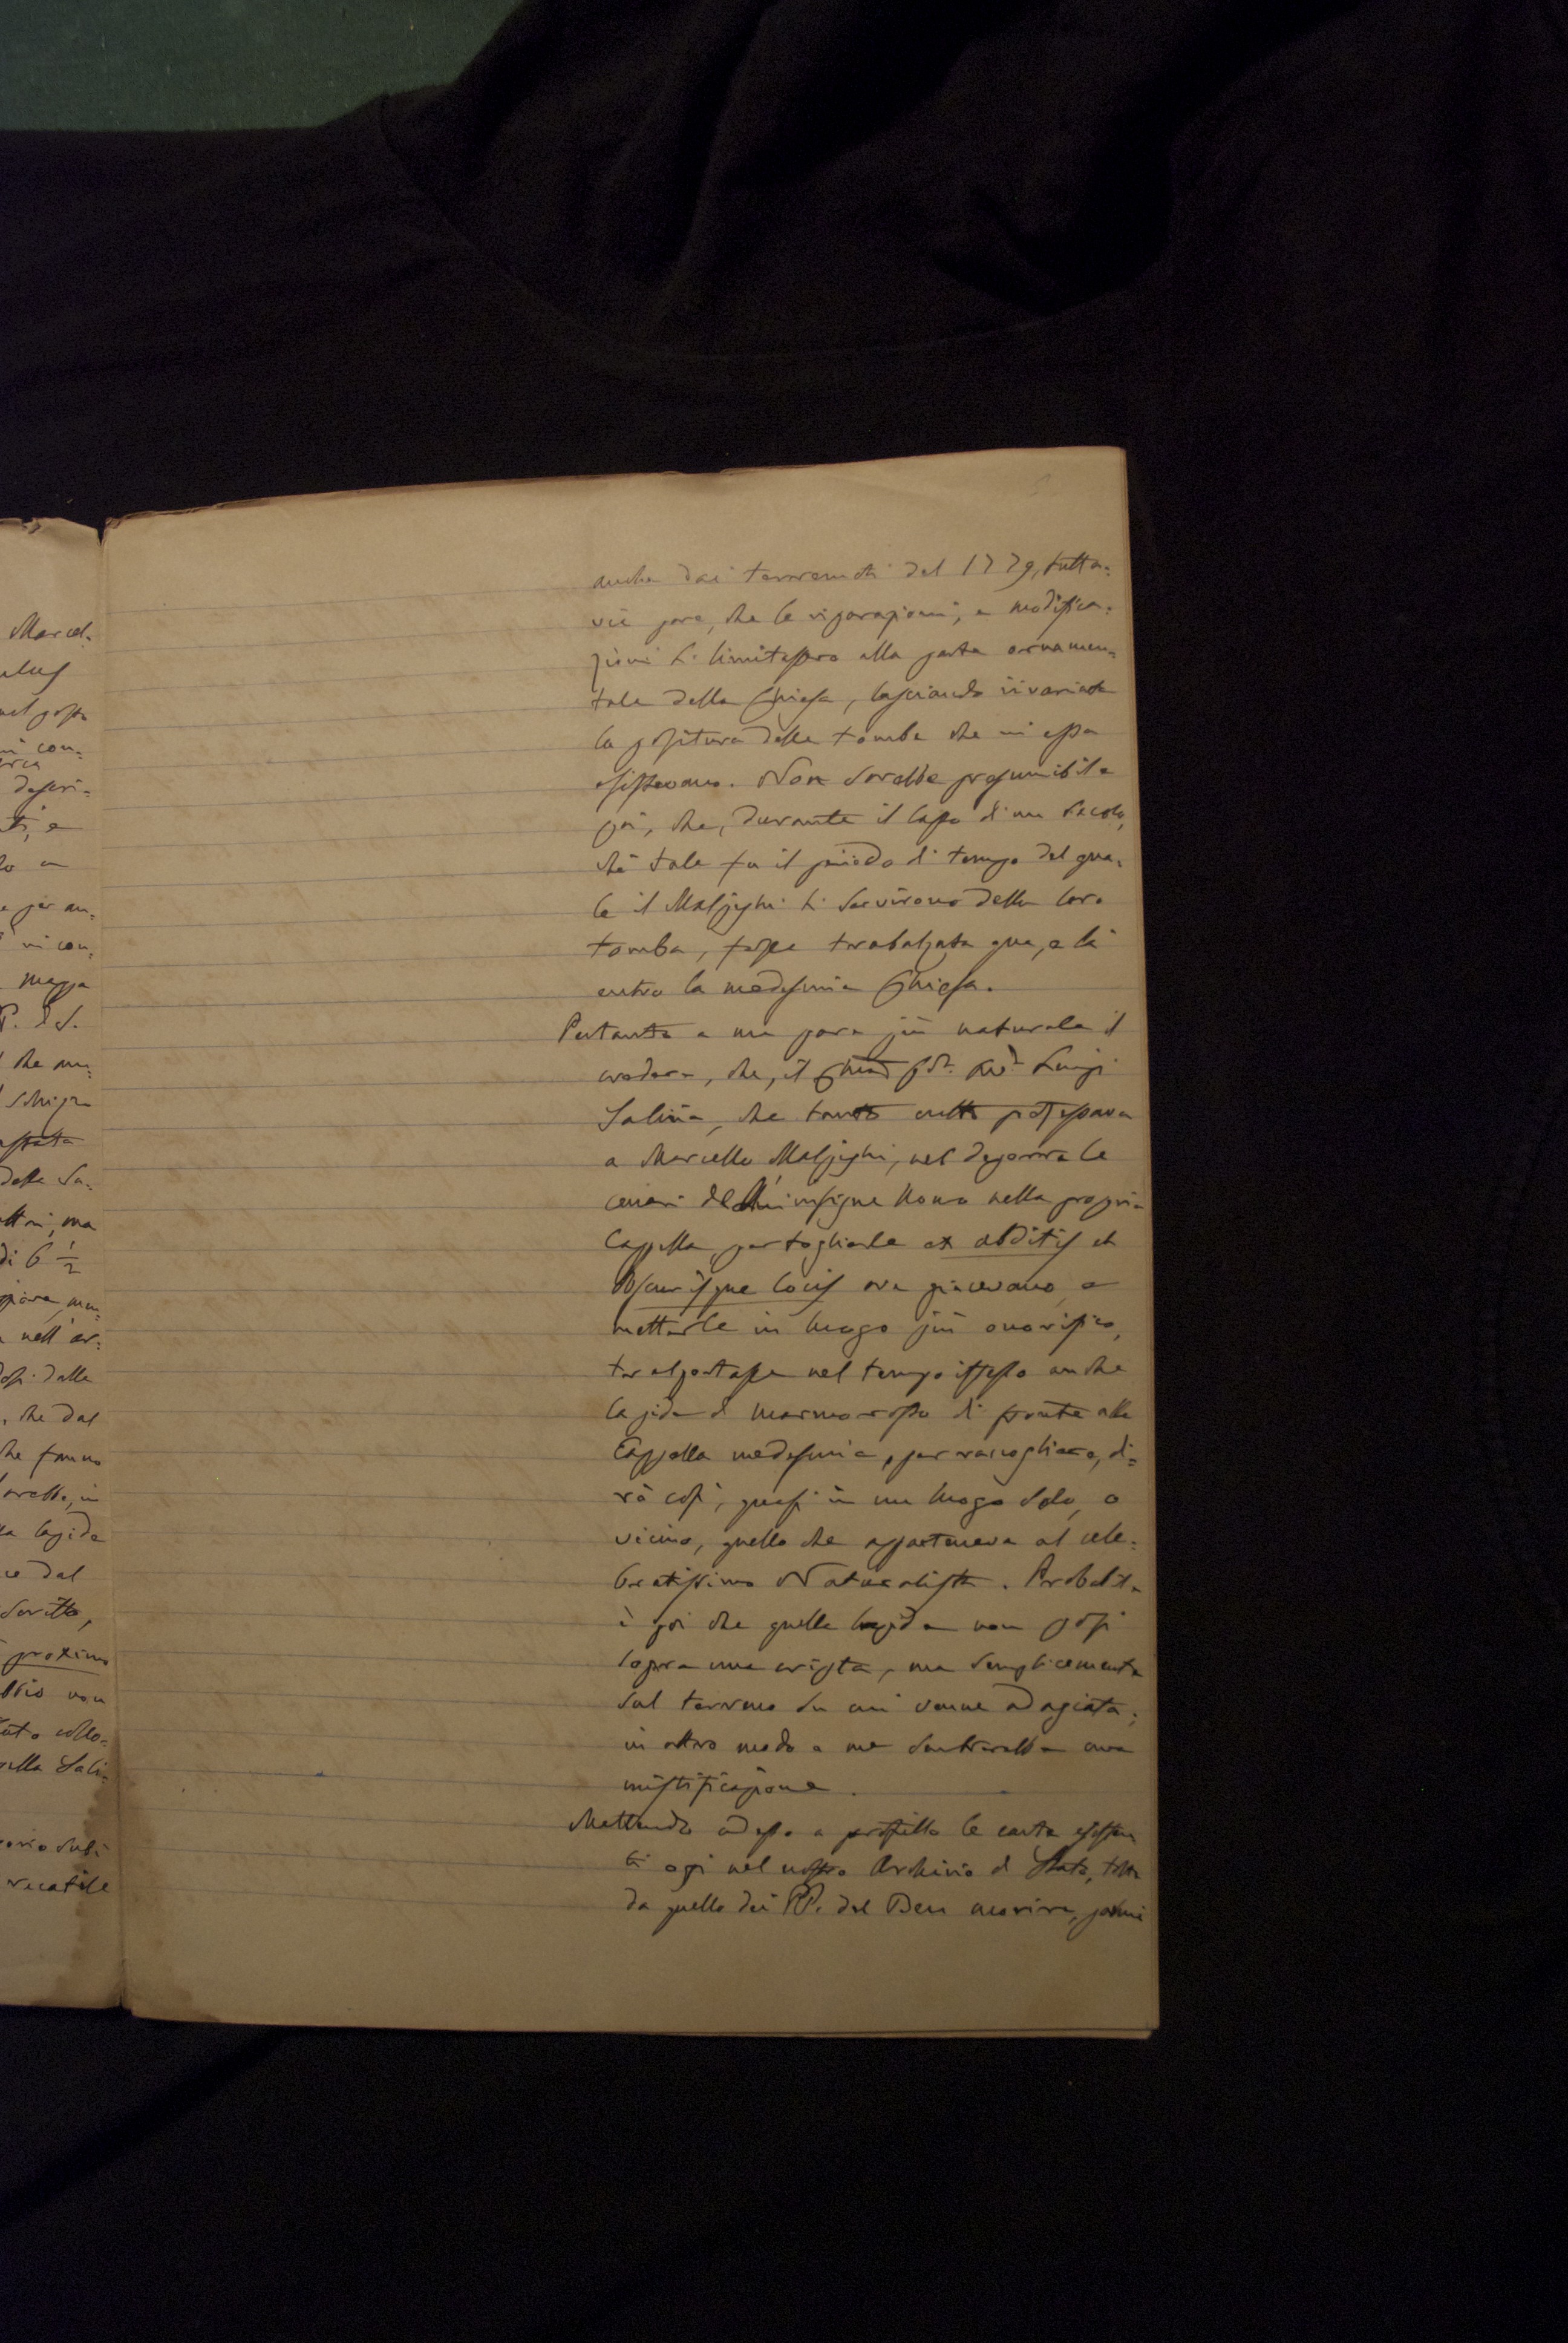 Marcel=
nel posto
con=
descri=
e
per au=
vi con=
mezza
P. d S.
che mi=
della Sa=
altri, ma
di 6 1/2
nell'ar=
dalle
che dal
che fanno
in
la lapide
dal
scritto,
proximo
non
collo=
Cappella Sali=
anche dai terremoti del 1779, tutta=
via pare, che le riparazioni, e modifica=
zioni si limitassero alla parte ornamen=
tale della Chiesa, lasciando invariata
la positura delle tombe che in essa
esistevano. Non sarebbe presumibile
poi, che, durante il lasso di un secolo,
chè tale fu il periodo di tempo del qua=
le i Malpighi si servirono della loro
tomba, fosse trabalzata qua, e là
entro la medesima Chiesa.
Pertanto a me pare più naturale il
credere, che, il Luigi
Salina, che tanto culto professava
a Marcello Malpighi, nel deporre le
ceneri insigne Uomo nella propria
Cappella, per toglierle ex abditis et
obscurisque locis ove giacevano, e
metterle in luogo più onorifico,
trasportasse nel tempo istesso anche
lapide di marmo rosso di fronte alla
Cappella medesima, per raccogliere, di=
rò così, quasi in un luogo solo, o
vicino, quello che apparteneva al cele=
bratissimo Naturalista. Probabile
è poi che quella lapide non posi
sopra una cripta, ma semplicemente
sul terreno su cui venne adagiata;
in altro modo a me sembrerebbe una
mistificazione.
Mettendo adesso a profitto le carte esisten
ti oggi nel nostro Archivio di Stato, tolte
da quello dei PP. del Ben morire, parmi